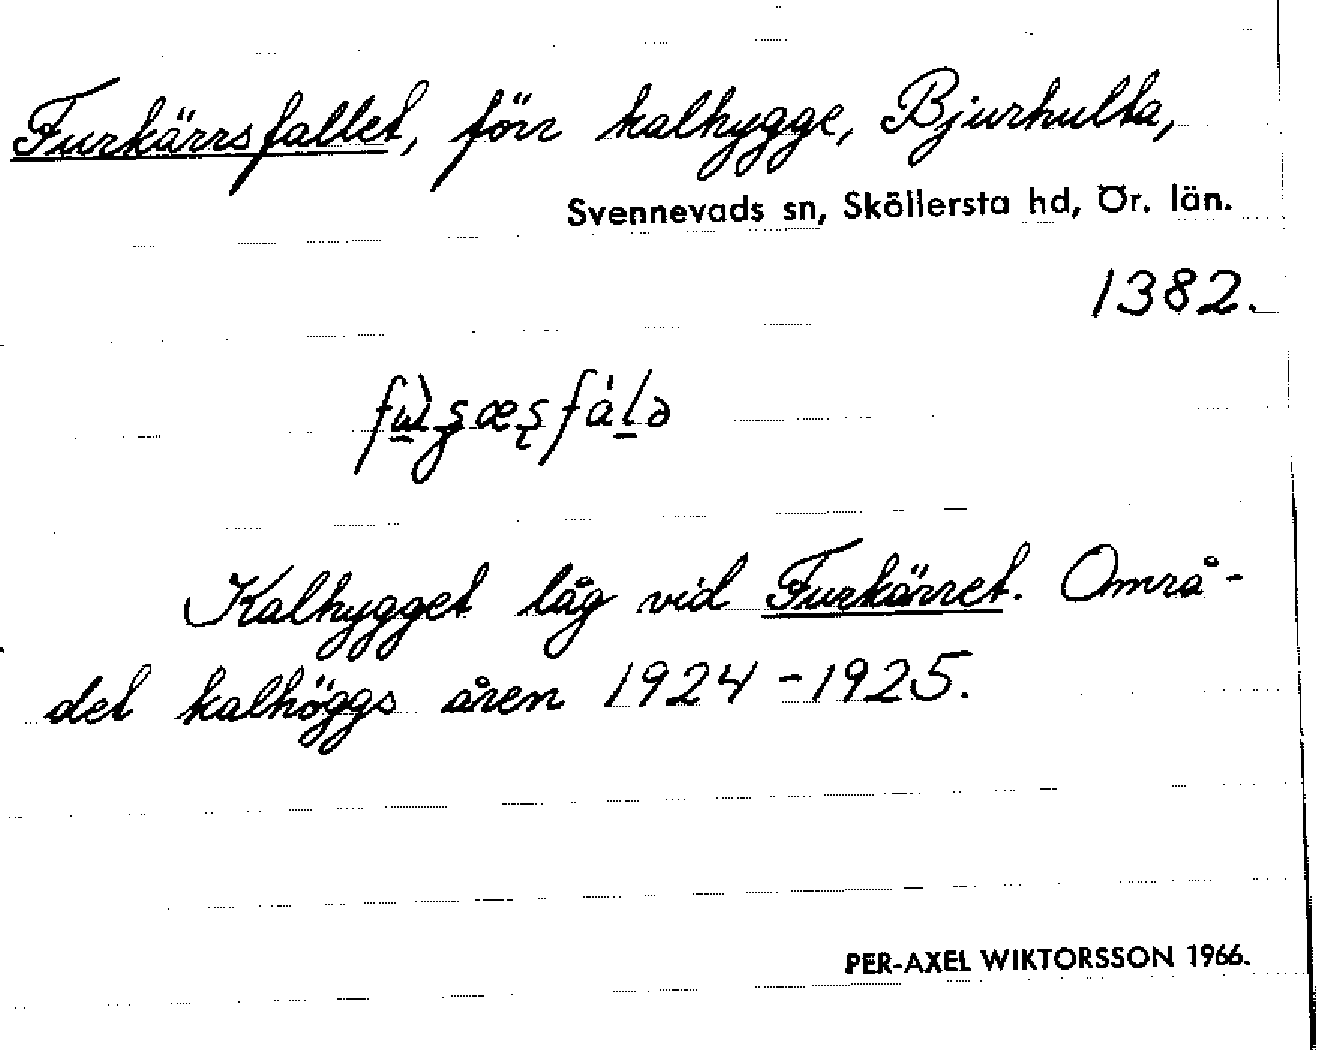 Furkärrsfallet, förr kalhygge, Bjurhulta,
Svennevads sn, Sköllersta hd, Ör. län.
1382.
Kalhygget låg vid Furkärret. Områ-
det kalhöggs åren 1924-1925.
PER-AXEL WIKTORSSON 1966.